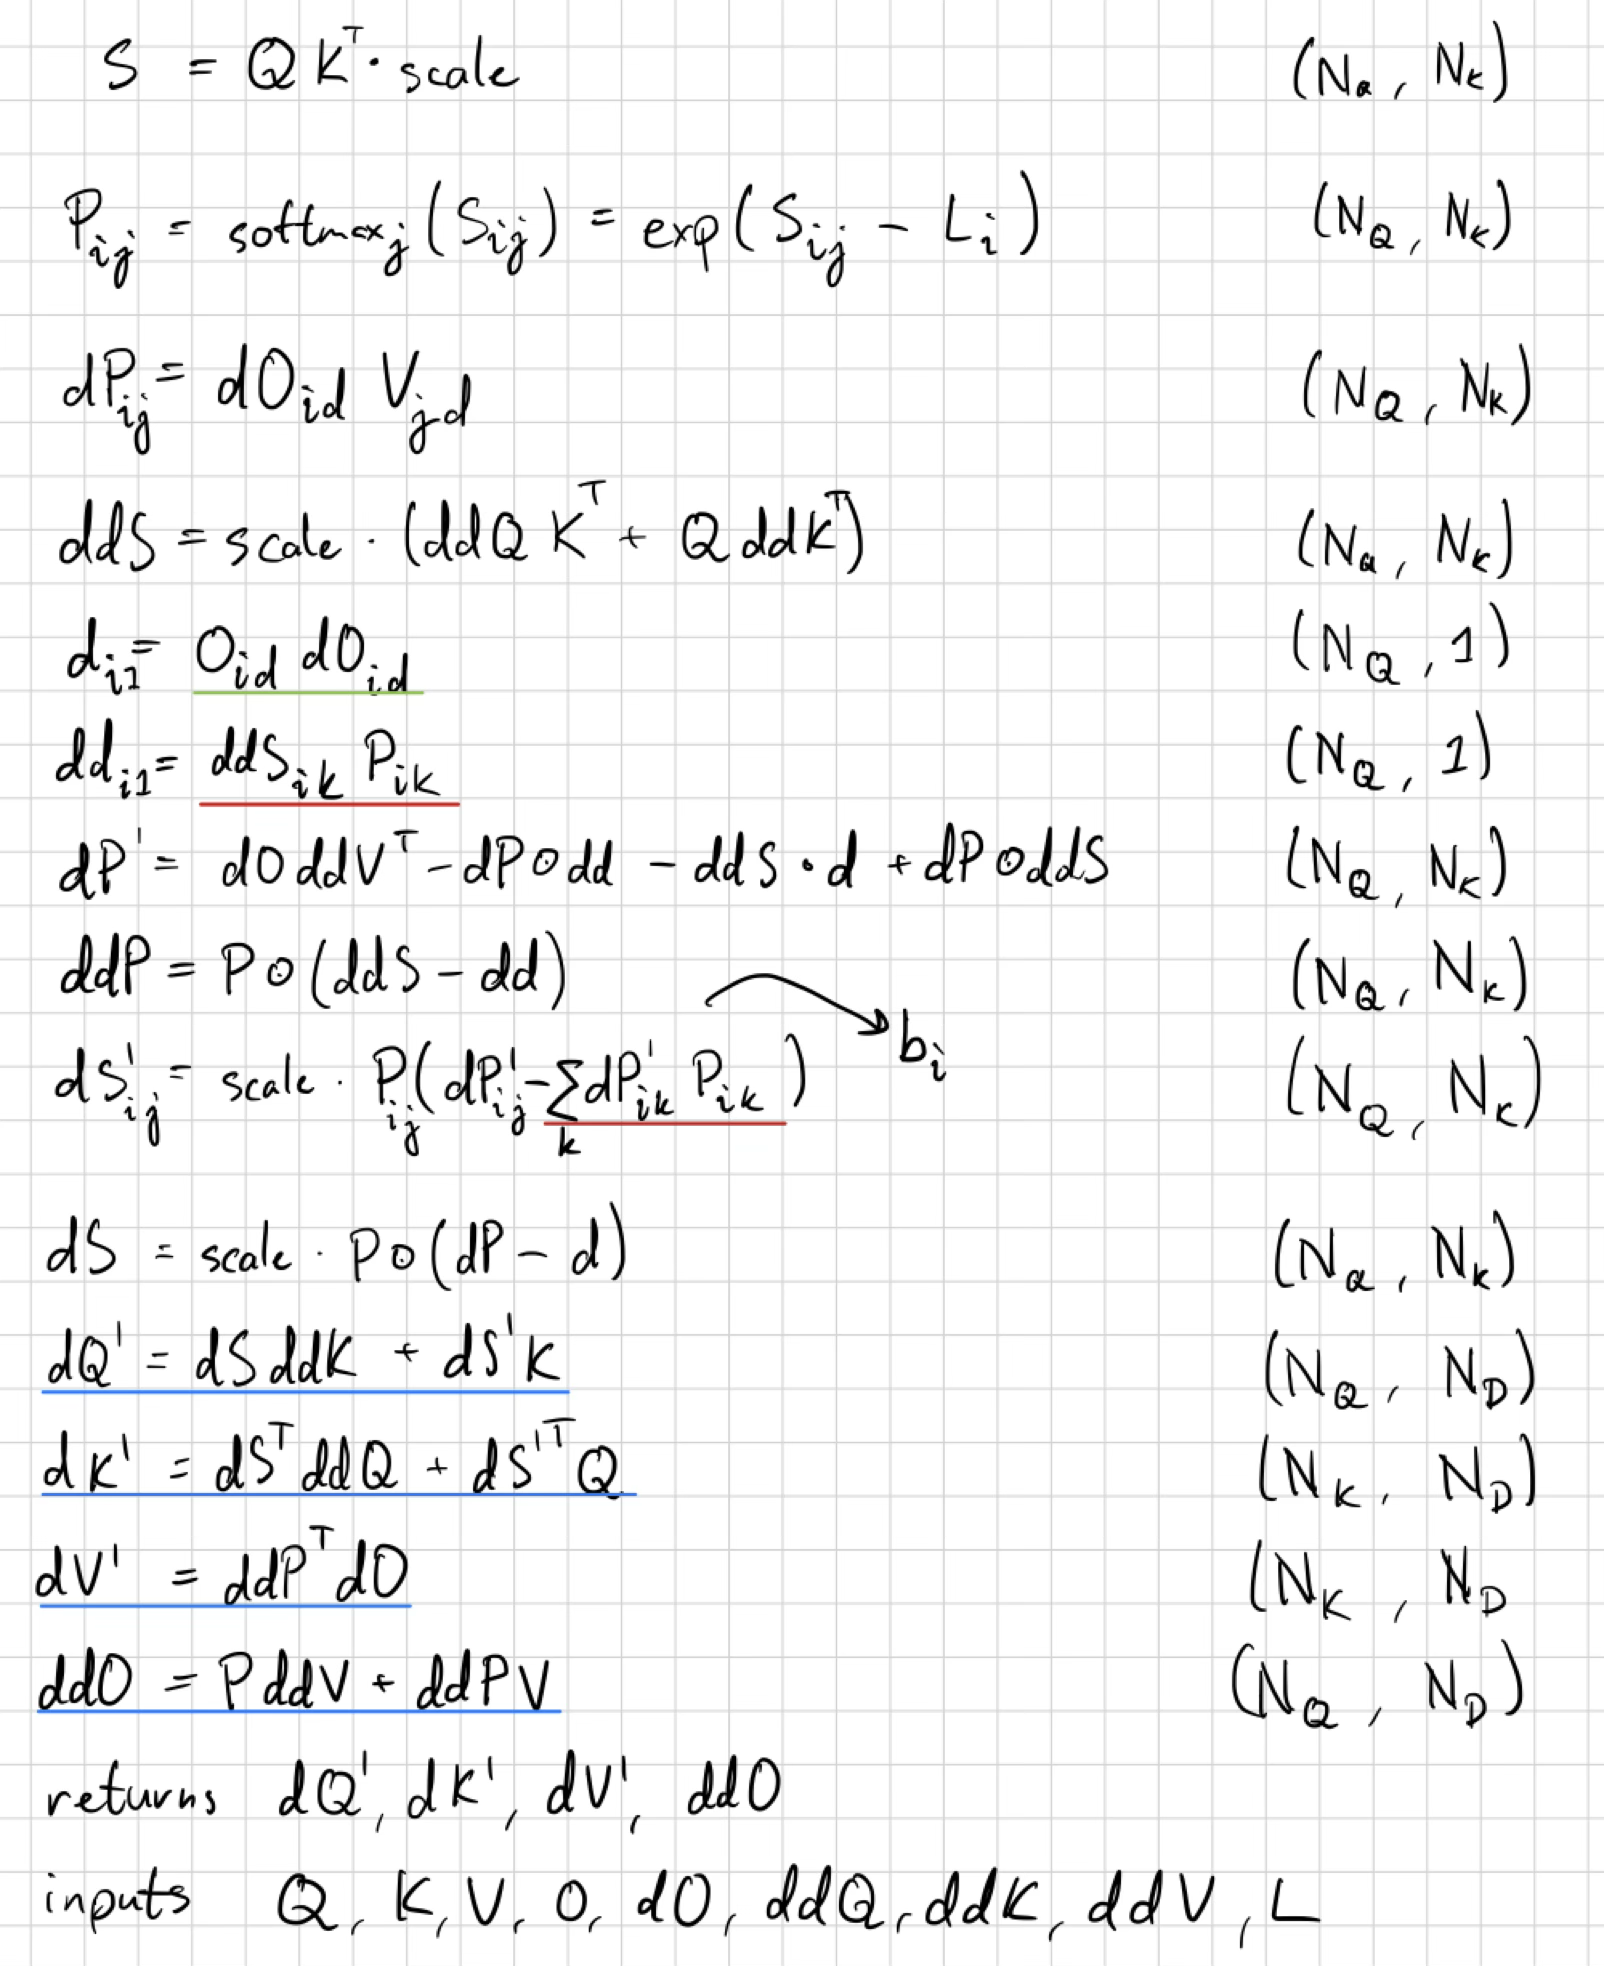 S = Q Kᵀ · scale (N_Q, N_K)
P_ij = softmax_j (S_ij) = exp(S_ij − L_i) (N_Q, N_K)
dP_ij = dO_id V_jd (N_Q, N_K)
ddS = scale · (ddQ Kᵀ + Q ddKᵀ) (N_Q, N_K)
d_i1 = O_id dO_id (N_Q, 1)
dd_i1 = ddS_ik P_ik (N_Q, 1)
dP' = dO ddVᵀ − dP ⊙ dd − ddS · d + dP ⊙ ddS (N_Q, N_K)
ddP = P ⊙ (ddS − dd) (N_Q, N_K)
→ b_i
dS'_ij = scale · P_ij (dP'_ij − Σ_k dP'_ik P_ik) (N_Q, N_K)
dS = scale · P ⊙ (dP − d) (N_Q, N_K)
dQ' = dS ddK + dS' K (N_Q, N_D)
dK' = dSᵀ ddQ + dS'ᵀ Q (N_K, N_D)
dV' = ddPᵀ dO (N_K, N_D
ddO = P ddV + ddP V (N_Q, N_D)
returns dQ', dK', dV', ddO
inputs Q, K, V, O, dO, ddQ, ddK, ddV, L